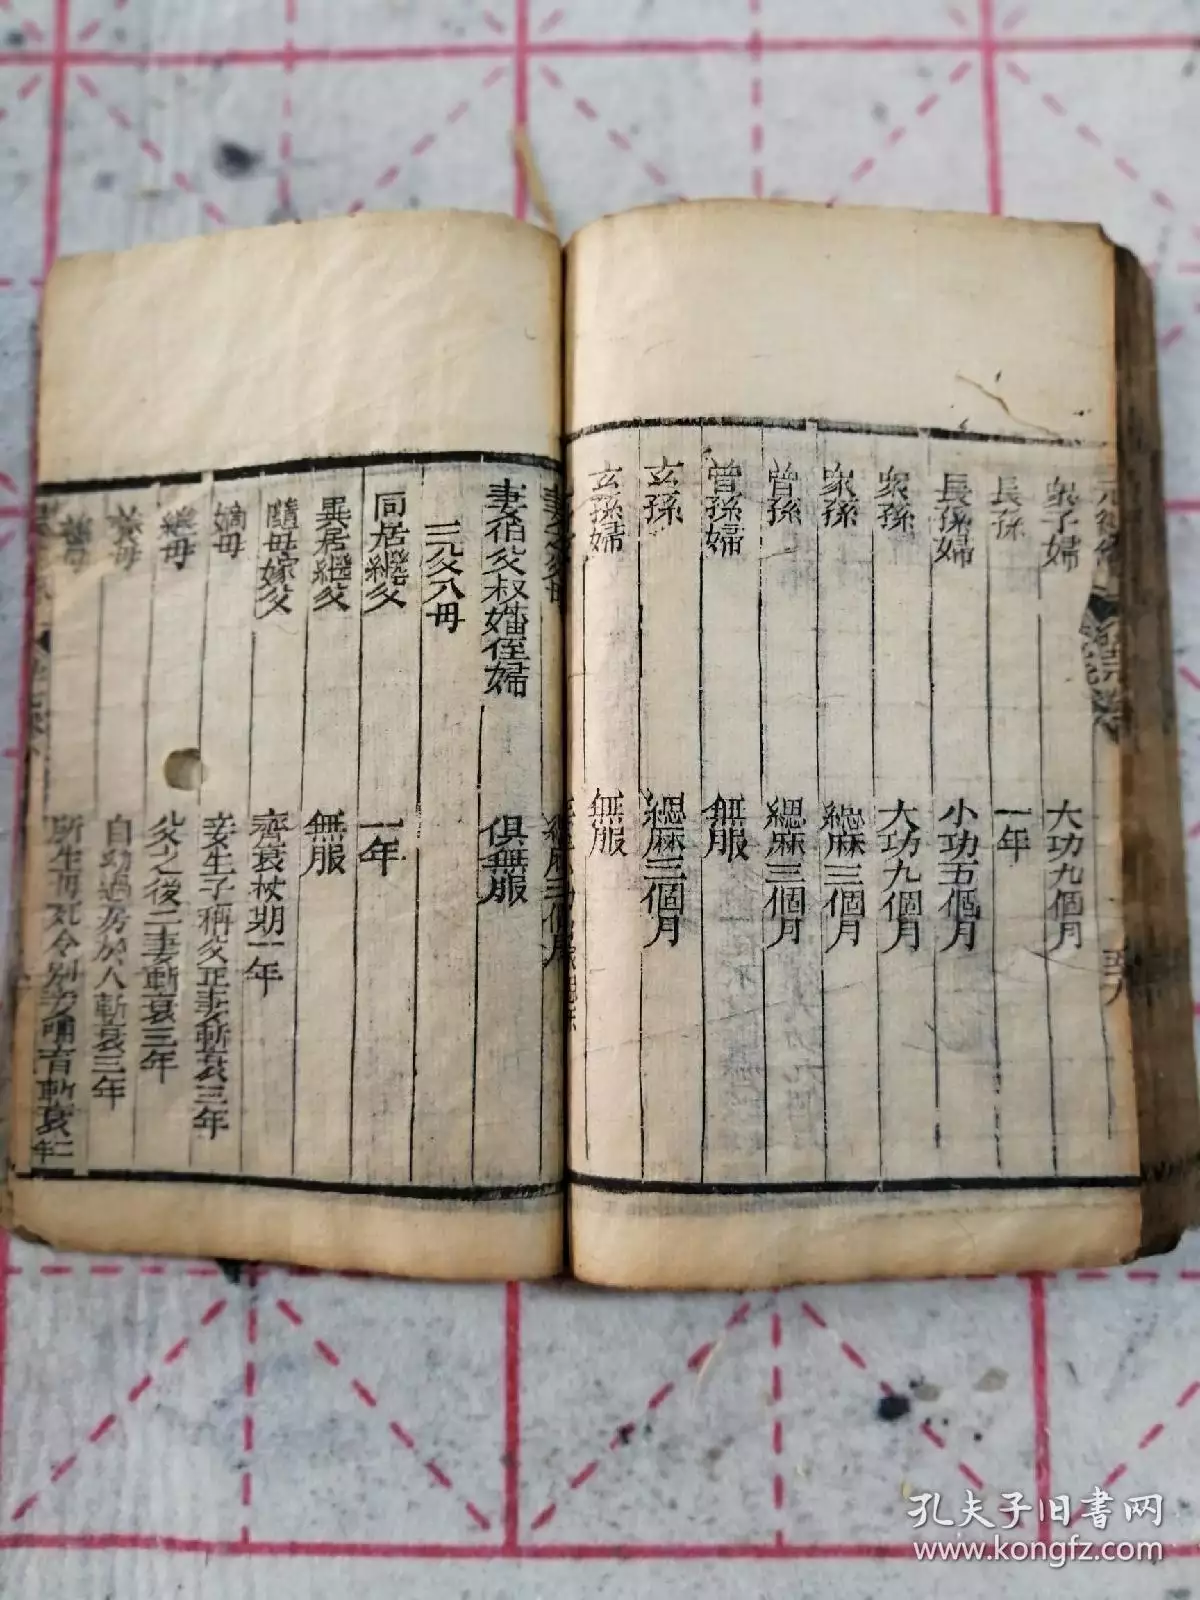 衆子婦 大功九個月
長孫 一年
長孫婦 小功五個月
衆孫 大功九個月
衆孫 緦麻三個月
曾孫 緦麻三個月
曾孫婦 無服
玄孫 緦麻三個月
玄孫婦 無服
妻之父母
妻伯父叔嬸侄婦 俱無服
三父八母
同居繼父 一年
異居繼父 無服
隨母嫁父 齊衰杖期一年
嫡母 妾生子稱父正妻斬衰三年
繼母 父之後二妻斬衰三年
養母 自幼過房於人斬衰三年
慈母 所生母死令別妾哺育斬衰三年
孔夫子旧书网
www.kongfz.com